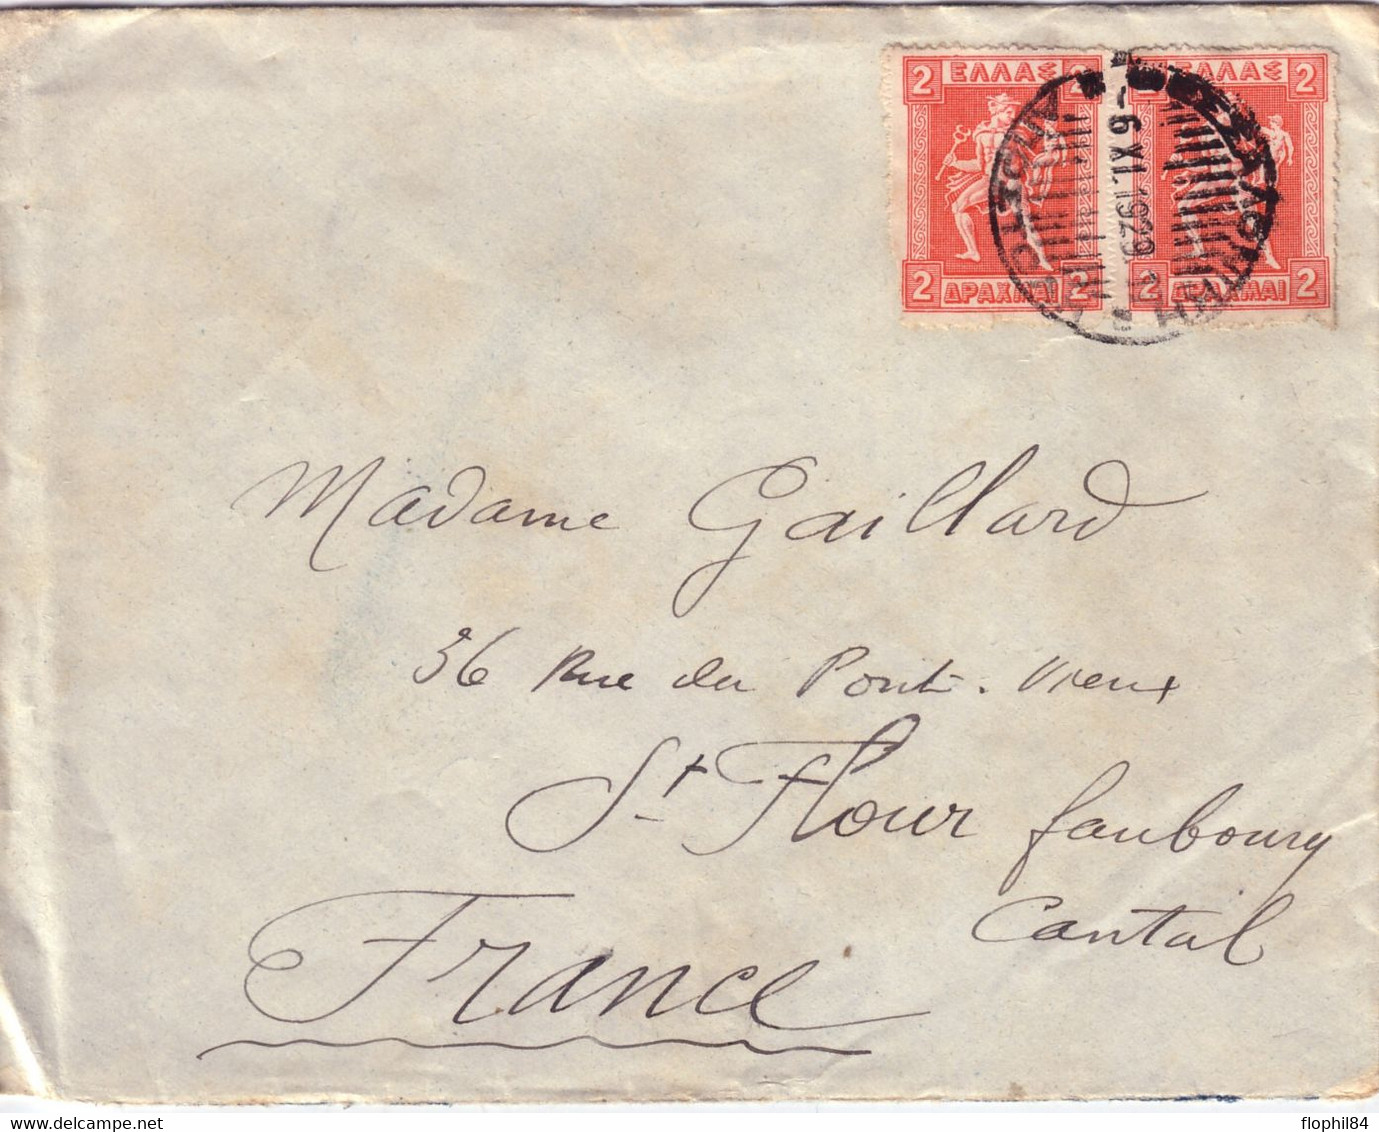 2 ΕΛΛΑΣ 2
ΕΛΛΑΣ 2
6 XI. 1929
2 ΔΡΑΧΜΑΙ 2
2 ΔΡΑΧΜΑΙ 2
Madame Gaillard
36 Rue du Pont-Vieux
St Flour faubourg
Cantal
France
www.delcampe.net
flophil84